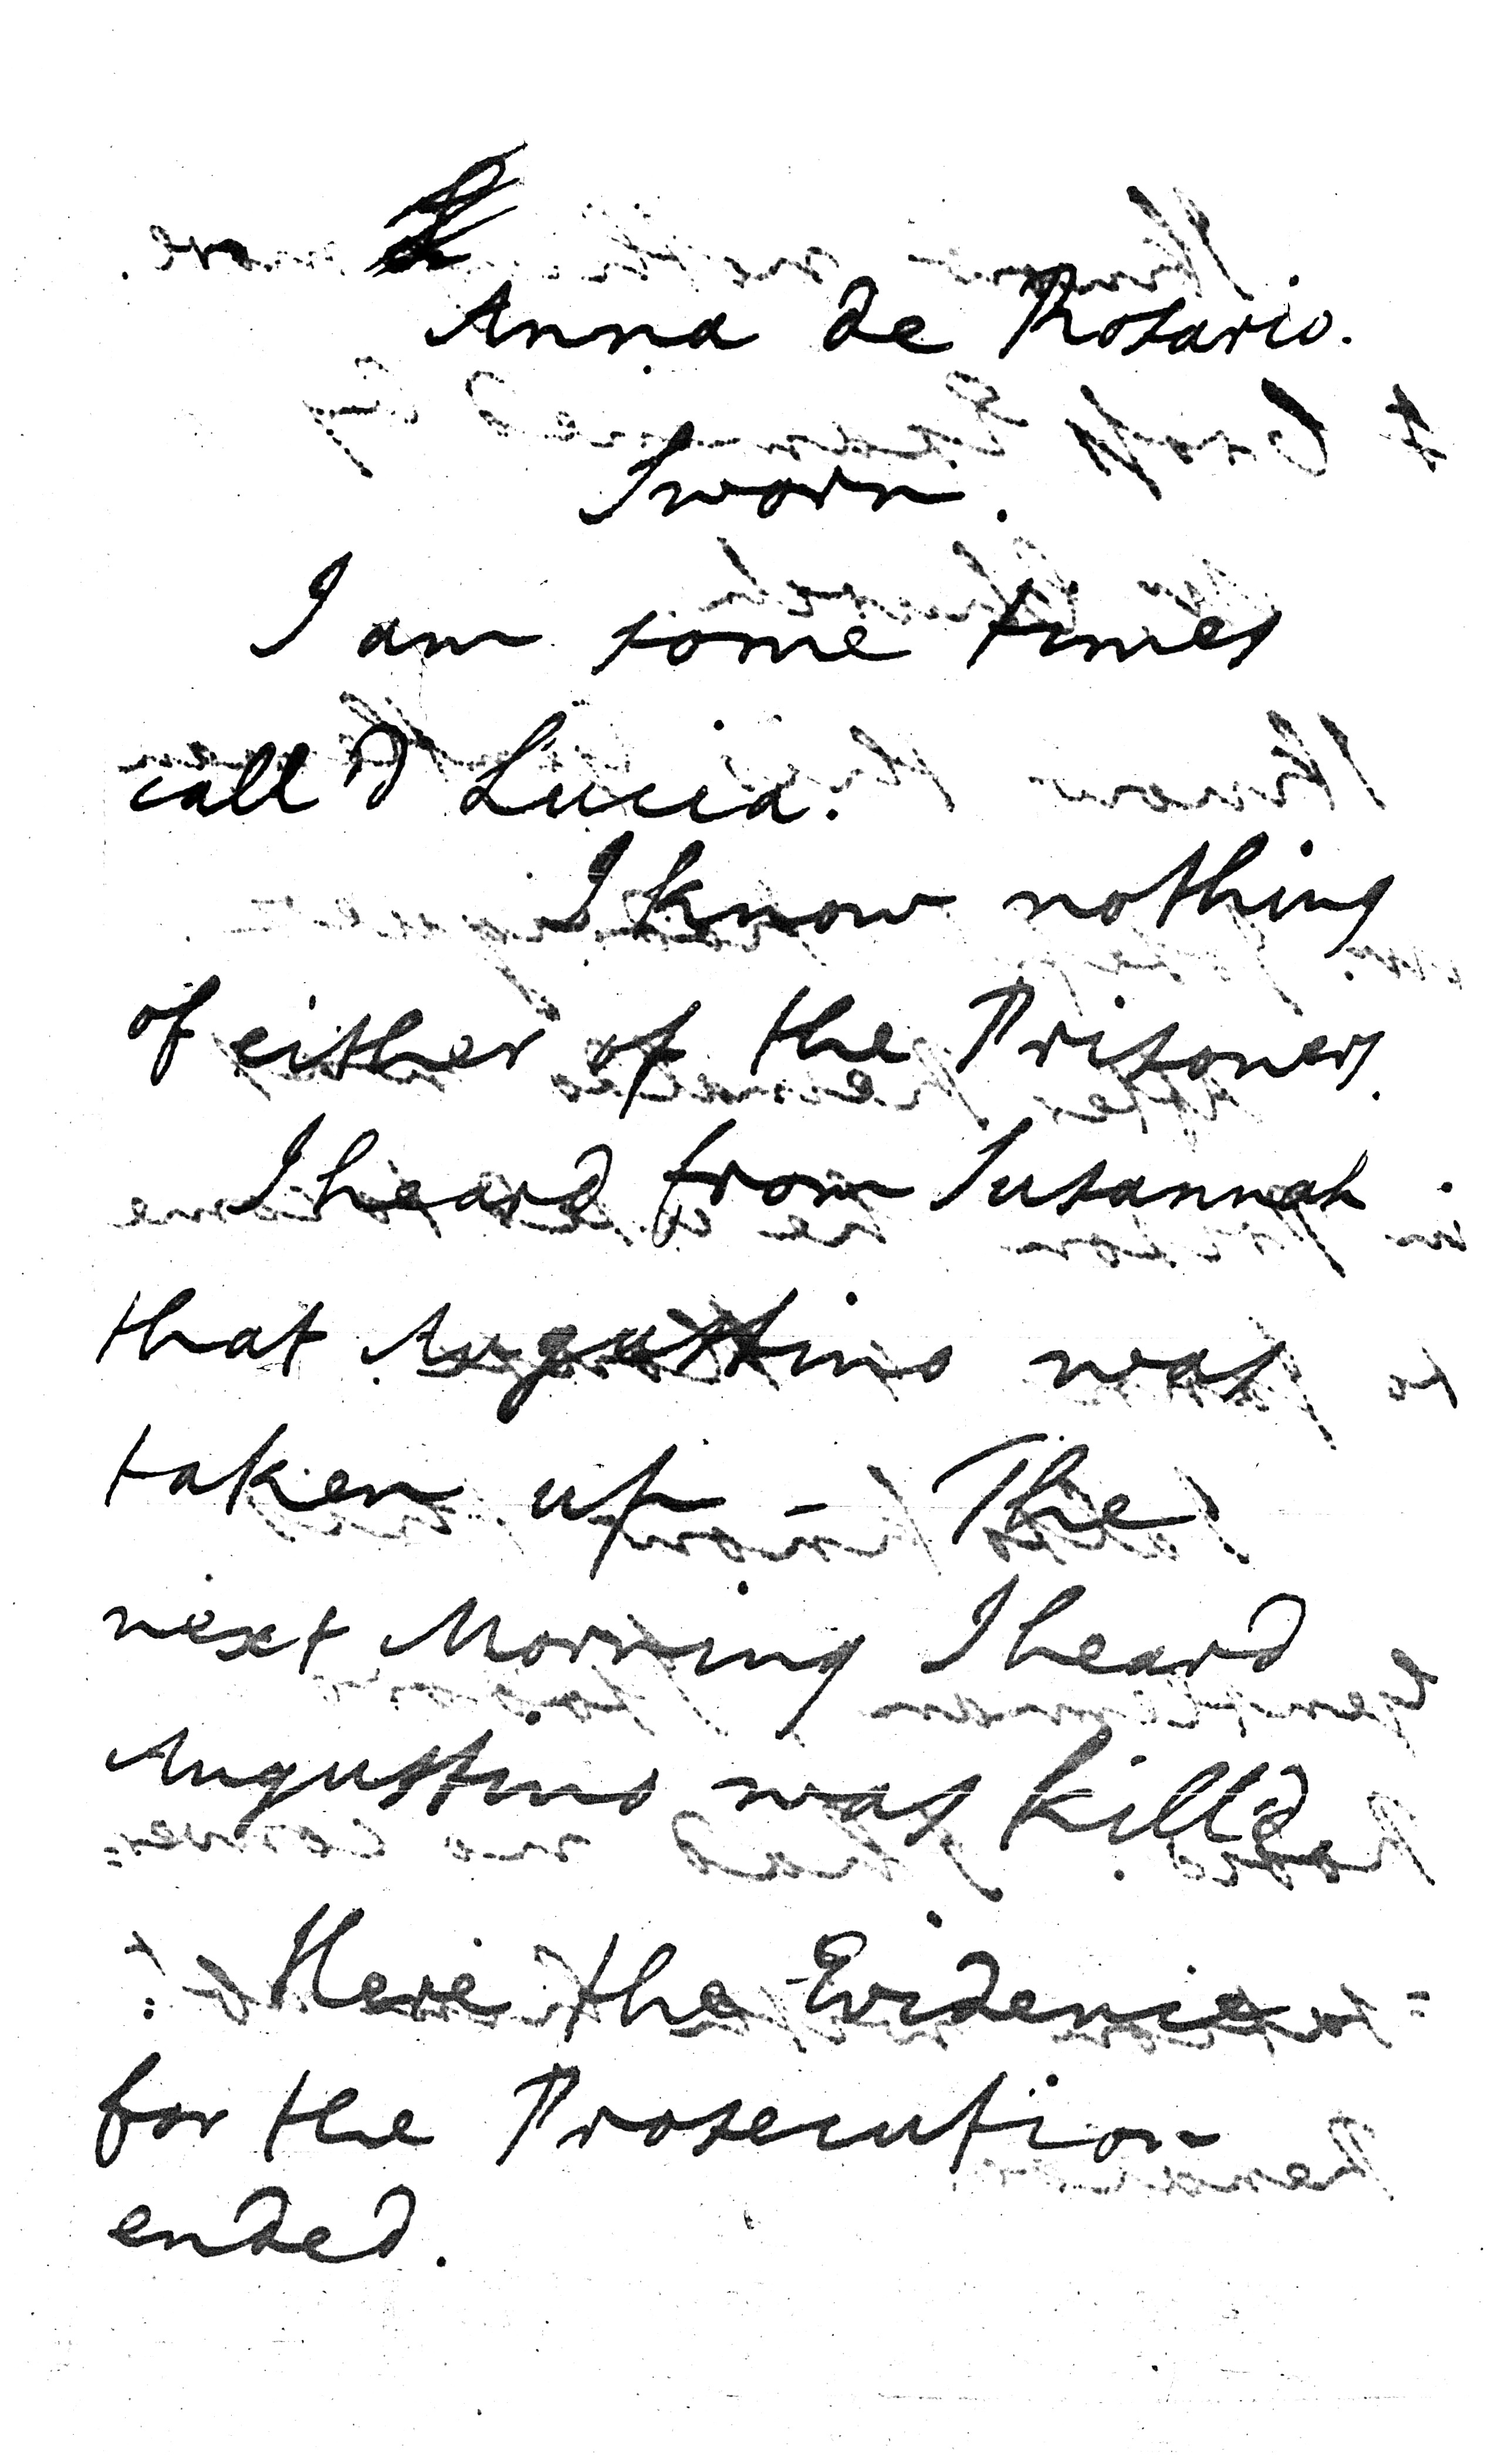 Anna de Rosario.
Sworn.
I am some times
call'd Lucia.
I know nothing
of either of the Prisoners.
I heard from Susannah
that Augustino was
taken up - The
next Morning I heard
Augustino was kill'd
Here the Evidence
for the Prosecution
ended.